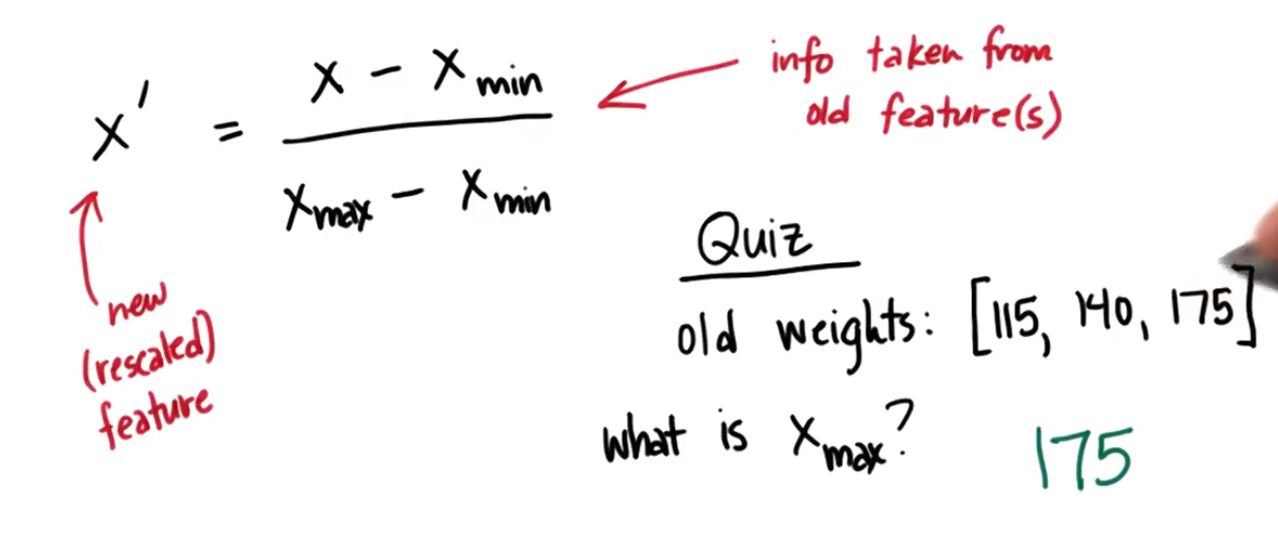 x' = (x - x min) / (x max - x min)
info taken from
old feature(s)
new
(rescaled)
feature
Quiz
old weights: [115, 140, 175]
what is x max?
175